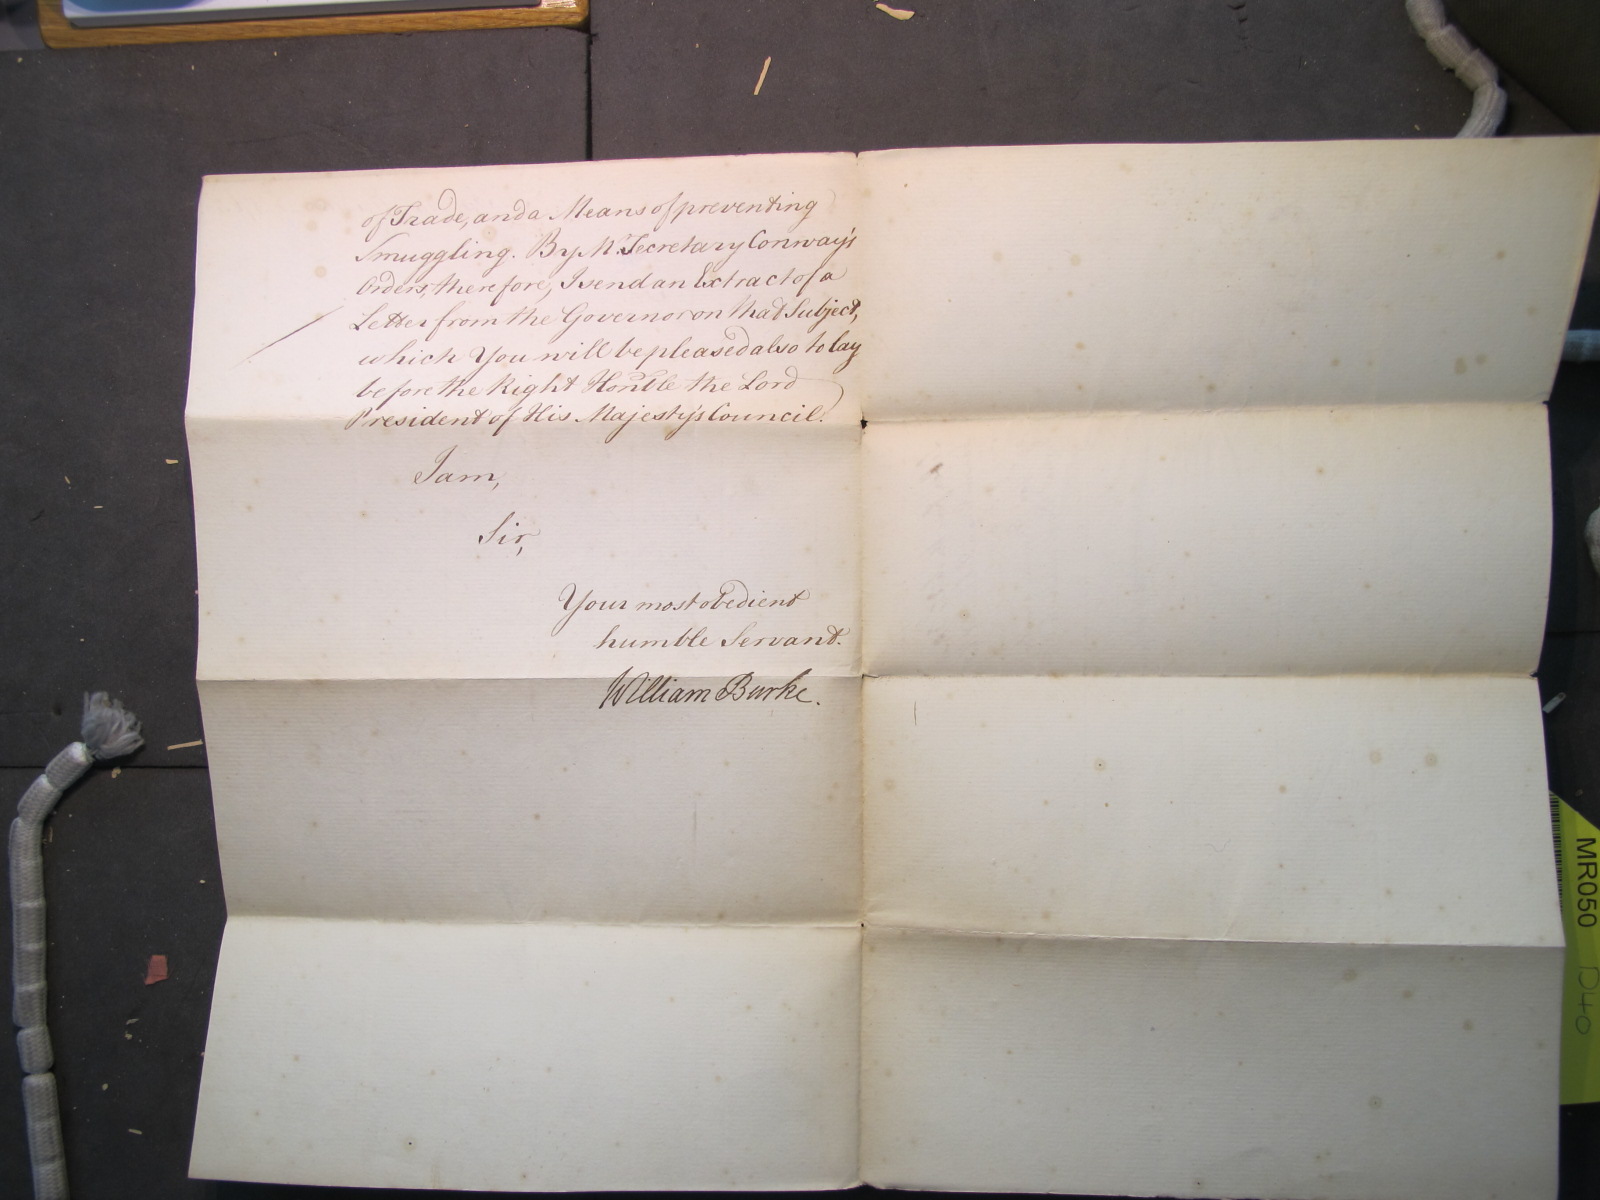 of Trade, and a Means of preventing
Smuggling. By Mr Secretary Conway's
Orders, therefore, I send an Extract of a
Letter from the Governor on that Subject,
which You will be pleased also to lay
before the Right Honble the Lord
President of His Majesty's Council.
I am,
Sir,
Your most obedient
humble Servant.
William Burke.
MR050
D40